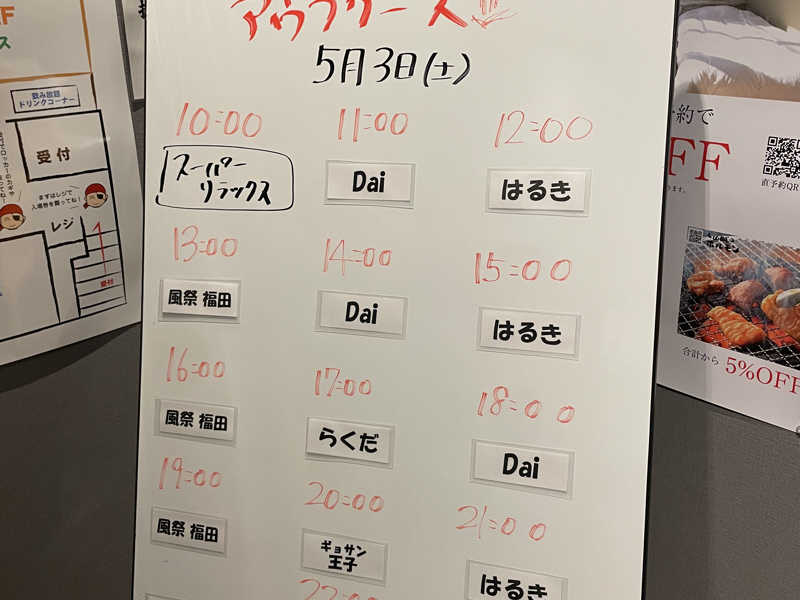 アウフグース
5月3日(土)
10:00
11:00
12:00
スーパー
リラックス
Dai
はるき
13:00
14:00
15:00
風祭 福田
Dai
はるき
16:00
17:00
18:00
風祭 福田
らくだ
Dai
19:00
20:00
21:00
風祭 福田
ギョサン
王子
はるき
22:00
飲み放題
ドリンクコーナー
受付
まずはレジで
入場券を買ってね!
レジ
受付
約で
FF
直予約QR
合計から 5%OFF